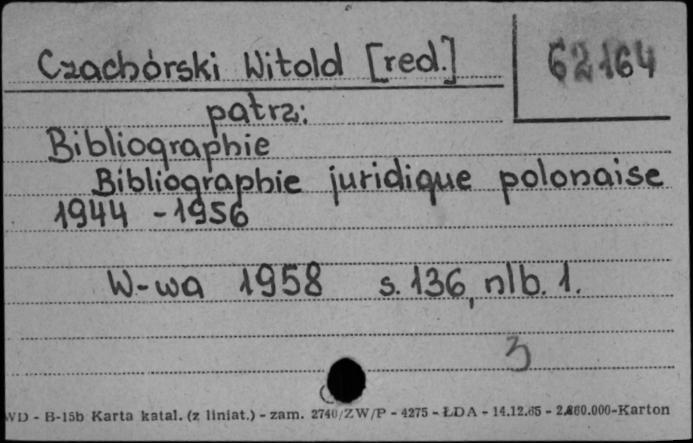 Czachórski Witold [red.]
62164
patrz:
Bibliographie
Bibliographie juridique polonaise
1944 - 1956
W-wa 1958 s. 136, nlb. 1.
3
WD - B-15b Karta katal. (z liniat.) - zam. 2740/ZW/P - 4275 - ŁDA - 14.12.65 - 2.860.000-Karton